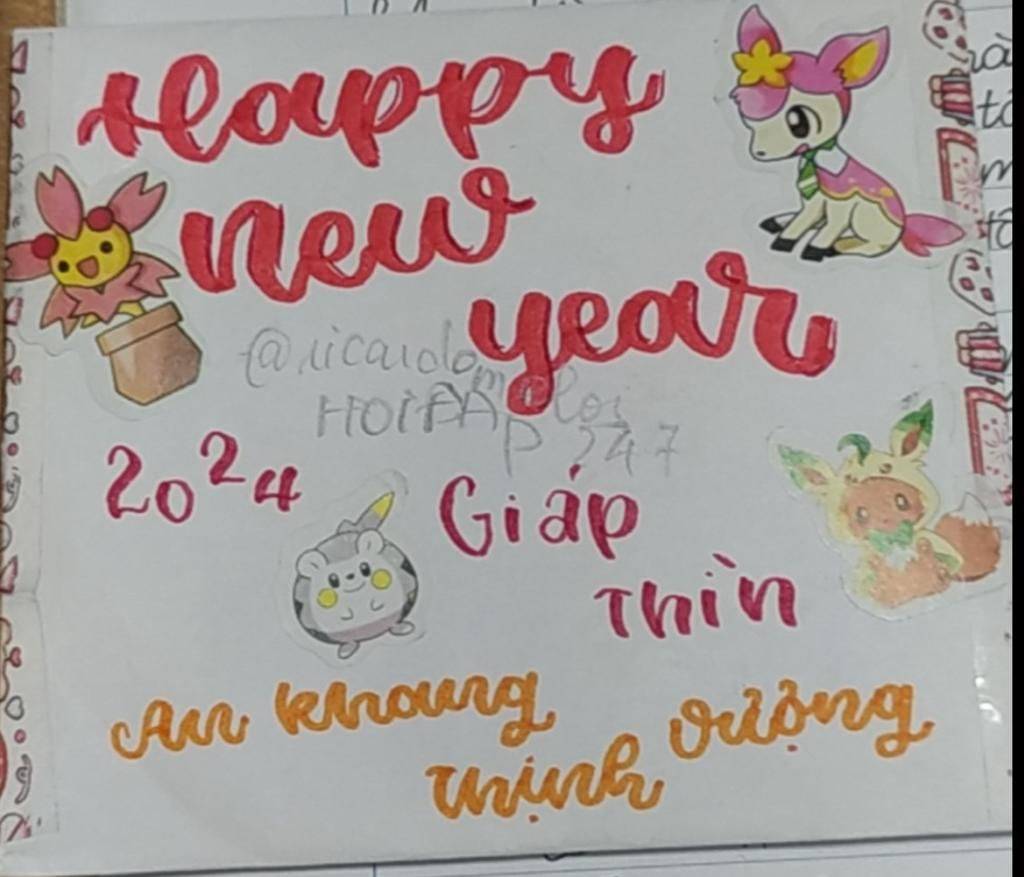 Happy
new
year
@ricardo
HOIFA
P 247
2024
Giáp
Thìn
An khang
thịnh vượng